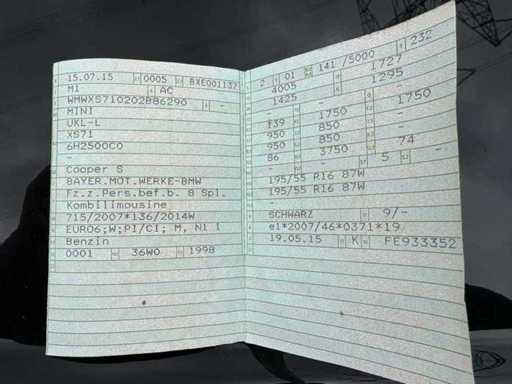 15.07.15 0005 BXE001137
M1 AC
WMWXS710202B86290 -
MINI
UKL-L
XS71
6H2500C0
-
Cooper S
BAYER.MOT.WERKE-BMW
Fz.z.Pers.bef.b. 8 Spl.
Kombilimousine
715/2007*136/2014W
EURO6;W;PI/CI; M, N1 I
Benzin
0001 36W0 1998
2 01 141 /5000 232
4005 1727
1425 - 1295
- - 1750
1750 -
950 850 -
950 850 -
86 3750 74
- 5 -
195/55 R16 87W
195/55 R16 87W
-
SCHWARZ 9/-
e1*2007/46*0371*19
19.05.15 K FE933352